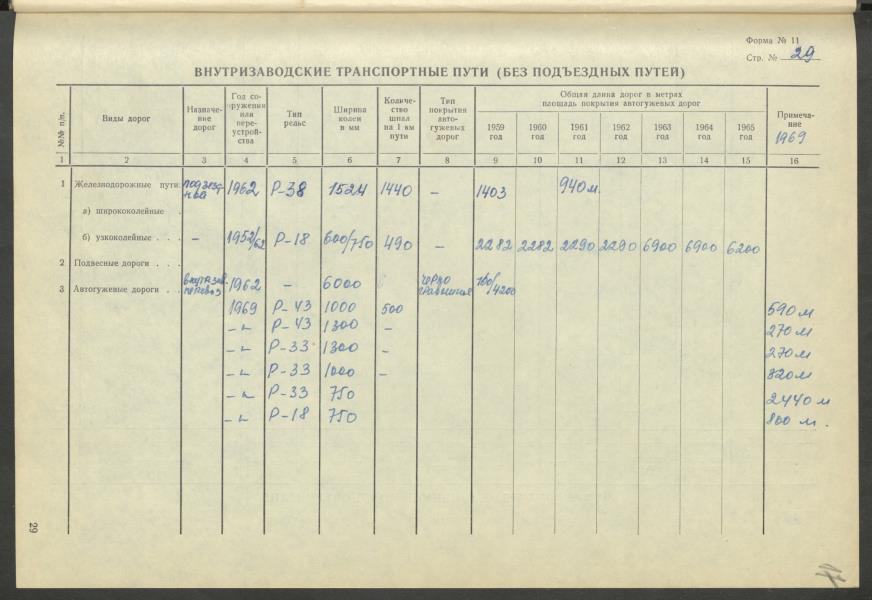 Форма № 11
Стр. № 29
ВНУТРИЗАВОДСКИЕ ТРАНСПОРТНЫЕ ПУТИ (БЕЗ ПОДЪЕЗДНЫХ ПУТЕЙ)
№№ п/п. Виды дорог Назначение дорог Год сооружения или переустройства Тип рельс Ширина колеи в мм Количество шпал на 1 км пути Тип покрытия автогужевых дорог Общая длина дорог в метрах площадь покрытия автогужевых дорог Примечание 1969
1959 год 1960 год 1961 год 1962 год 1963 год 1964 год 1965 год
1 2 3 4 5 6 7 8 9 10 11 12 13 14 15 16
1 Железнодорожные пути: 1962 Р-38 1524 1440 – 1403 940 м.
а) ширококолейные .
б) узкоколейные . . . – 1952/62 Р-18 600/750 490 – 2282 2282 2290 2290 6900 6900 6200
2 Подвесные дороги . . .
3 Автогужевые дороги . . 1962 – 6000 /4200
1969 Р-43 1000 500 590 м
–"– Р-43 1300 – 270 м
–"– Р-33 1300 – 270 м
–"– Р-33 1000 – 820 м
–"– Р-33 750 2440 м
–"– Р-18 750 800 м.
29